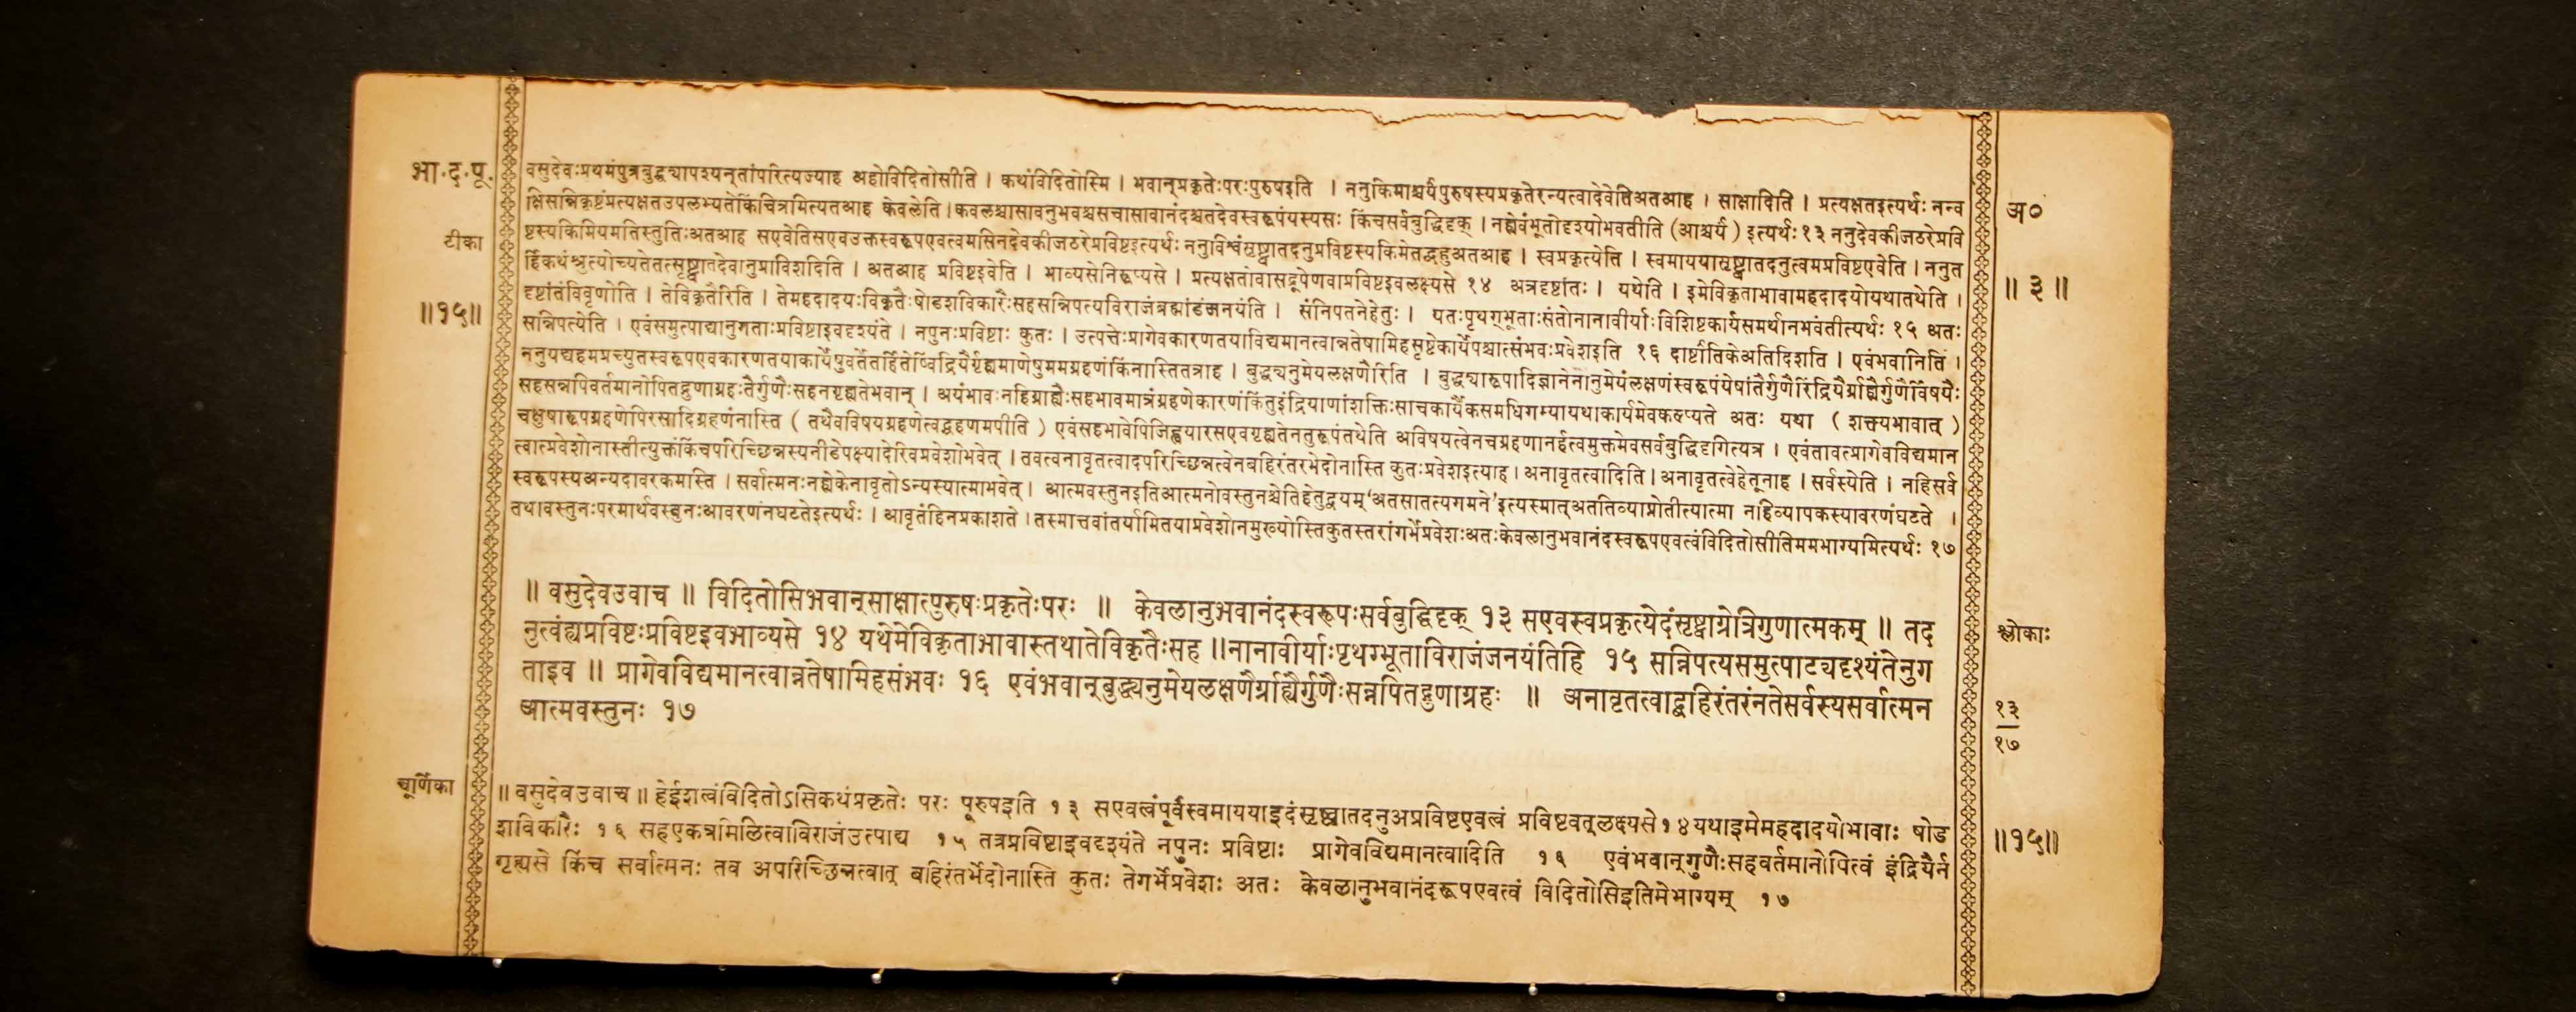 भा.द.पू.
टीका
॥१५॥
वसुदेवःप्रथमंपुत्रबुद्ध्यापश्यन्तांपरित्यज्याह अहोविदितोसीति । कथंविदितोस्मि । भवान्प्रकृतेःपरःपुरुषइति । ननुकिमाश्चर्यंपुरुषस्यप्रकृतेरन्यत्वादेवेतिअतआह । साक्षादिति । प्रत्यक्षतइत्यर्थः नन्व
क्षिसन्निकृष्टंप्रत्यक्षतउपलभ्यतेकिंचित्रमित्यतआह केवलेति । कवलश्चासावनुभवश्चसचासावानंदश्चतदेवस्वरूपंयस्यसः किंचसर्वबुद्धिदृक् । नह्येवंभूतोदृश्योभवतीति (आश्चर्यं ) इत्यर्थः १३ ननुदेवकीजठरेप्रवि
ष्टस्यकिमियमतिस्तुतिःअतआह सएवेतिसएवउक्तस्वरूपएवत्वमसिनदेवकीजठरेप्रविष्टइत्यर्थः ननुविश्वंसृष्ट्वातदनुप्रविष्टस्यकिमेतद्बहुअतआह । स्वप्रकृत्येति । स्वमाययासृष्ट्वातदनुत्वमप्रविष्टएवेति । ननुत
र्हिकथंश्रुत्योच्यतेतत्सृष्ट्वातदेवानुप्राविशदिति । अतआह प्रविष्टइवेति । भाव्यसेनिरूप्यसे । प्रत्यक्षतोवासद्रूपेणवाप्रविष्टइवलक्ष्यसे १४ अत्रदृष्टांतः । यथेति । इमेविकृताभावामहदादयोयथातथेति ।
दृष्टांतंविवृणोति । तेविकृतैरिति । तेमहदादयःविकृतैःषोडशविकारैःसहसन्निपत्यविराजंब्रह्मांडंजनयंति । संनिपतनेहेतुः । यतःपृथग्भूताःसंतोनानावीर्याःविशिष्टकार्यसमर्थानभवंतीत्यर्थः १५ अतः
सन्निपत्येति । एवंसमुत्पाद्यानुगताःप्रविष्टाइवदृश्यंते । नपुनःप्रविष्टाः कुतः । उत्पत्तेःप्रागेवकारणतयाविद्यमानत्वान्नतेषामिहसृष्टेकार्येपश्चात्संभवःप्रवेशइति १६ दार्ष्टांतिकेअतिदिशति । एवंभवानिति ।
ननुयद्यहमप्रच्युतस्वरूपएवकारणतयाकार्येषुवर्तेतर्हितेष्विंद्रियैर्गृह्यमाणेषुममग्रहणंकिंनास्तितत्राह । बुद्ध्यनुमेयलक्षणैरिति । बुद्ध्यारूपादिज्ञानेनानुमेयंलक्षणंस्वरूपंयेषांतैर्गुणैरिंद्रियैर्ग्राह्यैर्गुणैर्विषयैः
सहसन्नपिवर्तमानोपितद्गुणाग्रहःतैर्गुणैःसहनगृह्यतेभवान् । अयंभावःनहिग्राह्यैःसहभावमात्रंग्रहणेकारणंकिंतुइंद्रियाणांशक्तिःसाचकार्यैकसमधिगम्यायथाकार्यमेवकल्प्यते अतः यथा ( शक्त्यभावात् )
चक्षुषारूपग्रहणेपिरसादिग्रहणंनास्ति ( तथैवविषयग्रहणेत्वद्ग्रहणमपीति ) एवंसहभावेपिजिह्वयारसएवगृह्यतेनतुरूपंतथेति अविषयत्वेनचग्रहणानर्हत्वमुक्तमेवसर्वबुद्धिदृगित्यत्र । एवंतावत्प्रागेवविद्यमान
त्वात्प्रवेशोनास्तीत्युक्तंकिंचपरिच्छिन्नस्यनीडेपक्ष्यादेरिवप्रवेशोभवेत् । तवत्वनावृतत्वादपरिच्छिन्नत्वेनबहिरंतरभेदोनास्ति कुतःप्रवेशइत्याह। अनावृतत्वादिति। अनावृतत्वेहेतूनाह । सर्वस्येति । नहिसर्व
स्वरूपस्यअन्यदावरकमास्ति । सर्वात्मनःनह्येकेनावृतोऽन्यस्यात्माभवेत् । आत्मवस्तुनइतिआत्मनोवस्तुनश्चेतिहेतुद्वयम् 'अतसातत्यगमने' इत्यस्मात्अततिव्याप्नोतीत्यात्मा नहिव्यापकस्यावरणंघटते ।
तथावस्तुनःपरमार्थवस्तुनःआवरणंनघटतेइत्यर्थः । आवृतंहिनप्रकाशते । तस्मात्तवांतर्यामितयाप्रवेशोनमुख्योस्तिकुतस्तरांगर्भेप्रवेशःअतःकेवलानुभवानंदस्वरूपएवत्वंविदितोसीतिममभाग्यमित्यर्थः १७
अ०
॥ ३ ॥
॥ वसुदेवउवाच ॥ विदितोसिभवान्साक्षात्पुरुषःप्रकृतेःपरः ॥ केवलानुभवानंदस्वरूपःसर्वबुद्धिदृक् १३ सएवस्वप्रकृत्येदंसृष्ट्वाग्रेत्रिगुणात्मकम् ॥ तद
नुत्वंह्यप्रविष्टःप्रविष्टइवभाव्यसे १४ यथेमेविकृताभावास्तथातेविकृतैःसह ॥नानावीर्याःपृथग्भूताविराजंजनयंतिहि १५ सन्निपत्यसमुत्पाद्यदृश्यंतेनुग
ताइव ॥ प्रागेवविद्यमानत्वान्नतेषामिहसंभवः १६ एवंभवान्बुद्ध्यनुमेयलक्षणैर्ग्राह्यैर्गुणैःसन्नपितद्गुणाग्रहः ॥ अनावृतत्वाद्बहिरंतरंनतेसर्वस्यसर्वात्मन
आत्मवस्तुनः १७
श्लोकाः
१३
१७
चूर्णिका
॥ वसुदेवउवाच ॥ हेईशत्वंविदितोऽसिकथंप्रकृतेः परः पूरुषइति १३ सएवत्वंपूर्वंस्वमाययाइदंसृष्ट्वातदनुअप्रविष्टएवत्वं प्रविष्टवत्लक्ष्यसे१४यथाइमेमहदादयोभावाः षोड
शविकारैः १६ सहएकत्रमिलित्वाविराजंउत्पाद्य १५ तत्रप्रविष्टाइवदृश्यंते नपुनः प्रविष्टाः प्रागेवविद्यमानत्वादिति १६ एवंभवान्गुणैःसहवर्तमानोपित्वं इंद्रियैर्न
गृह्यसे किंच सर्वात्मनः तव अपरिच्छिन्नत्वात् बहिरंतर्भेदोनास्ति कुतः तेगर्भेप्रवेशः अतः केवलानुभवानंदरूपएवत्वं विदितोसिइतिमेभाग्यम् १७
॥१५॥